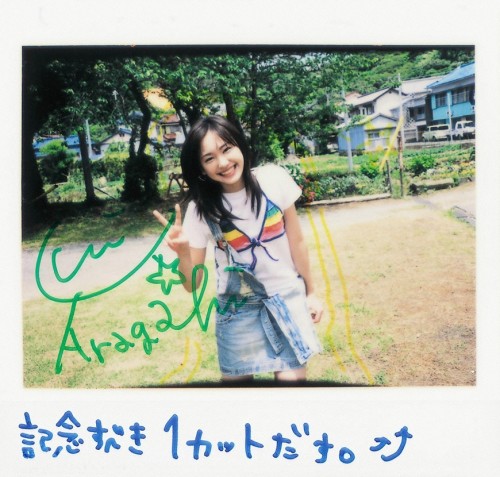 Yui
Aragaki
記念すべき1カットだす。